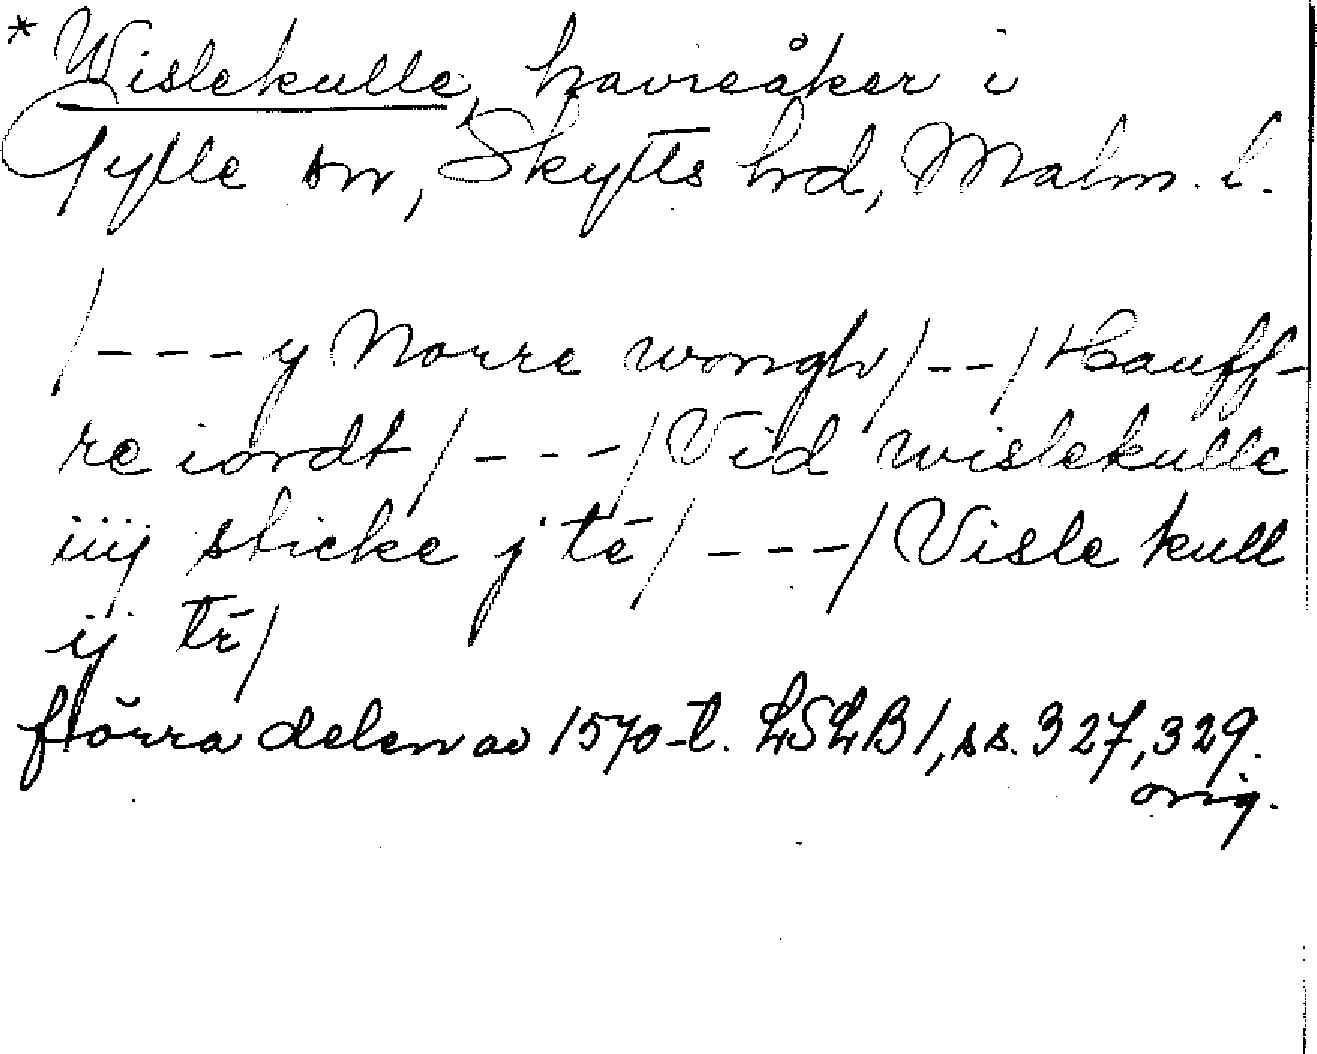 * Wislekulle, havreåker i
Gylle sn, Skytts hrd, Malm. l.
/---y Norre wongh/--/Hauff-
re iordt/---/Vid wislekulle
iiij sticke j tē/---/Visle kull
ij tē/
förra delen av 1570-t. LSLB1, ss. 327, 329.
orig.